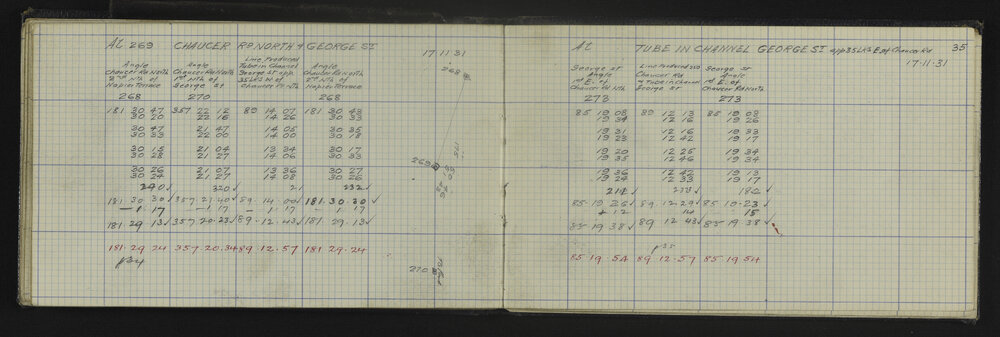 At 269 CHAUCER RD NORTH & GEORGE ST
17.11.31
Angle Chaucer Rd North 2nd Nth of Napier Terrace
Angle Chaucer Rd North 1st Nth of George St
Line Produced Tube in Channel George St opp 35 LKS of Chaucer Rd Nth
Angle Chaucer Rd North 2nd Nth of Napier Terrace
268 270 268
181 30 47 357 22 12 89 14 07 181 30 43
30 20 22 16 14 26 30 33
30 47 21 47 14 05 30 35
30 33 22 00 14 00 30 18
30 15 21 04 13 34 30 17
30 28 21 27 14 06 30 33
30 26 21 07 13 36 30 27
30 24 21 27 14 08 30 26
240 320 21 232
181 30 30 357 21 40 89 14 00 181.30.30
— 1 17 — 1 17 — 1 17 — 1 17
181 29 13 357 20.23 89.12.43 181 29.13
181.29 24 357.20.34 89.12.57 181 29.24
p34
268
269
270
At TUBE IN CHANNEL GEORGE ST opp 35 LKS E of Chaucer Rd 35
17.11.31
George St Angle 1st E. of Chaucer Rd Nth
Line Produced Chaucer Rd & Tube in Channel George St
George St Angle 1st E. of Chaucer Rd North
273 273
85 19 08 89 12 13 85 19 08
19 34 12 16 19 26
19 31 12 16 19 33
19 23 12 42 19 17
19 20 12 25 19 34
19 35 12 46 19 34
19 36 12 42 19 13
19 24 12 33 19 17
211 233 182
85.19 26 89 12.29 85.19.23
+ 12 14 15
85 19 38 89 12 43 85 19 38
p35
85.19 54 89 12.57 85 19 54